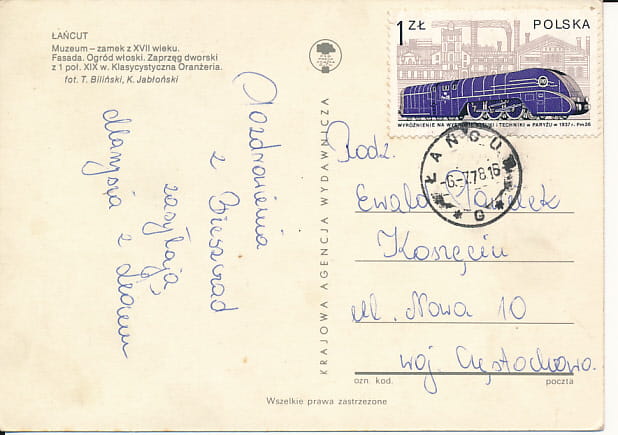 ŁAŃCUT
Muzeum – zamek z XVII wieku.
Fasada. Ogród włoski. Zaprzęg dworski
z 1 poł. XIX w. Klasycystyczna Oranżeria.
fot. T. Biliński, K. Jabłoński
Pozdrowienia
z Brzeszrad
zasyłają
Marysia z
KRAJOWA AGENCJA WYDAWNICZA
1 ZŁ POLSKA
WYRÓŻNIENIE NA WYSTAWIE SZTUKI I TECHNIKI W PARYŻU W 1937 r. Pm36
ŁAŃCUT
-6.-7.78.16
G
Rodz.
Ewald
Koszęcin
ul. Nowa 10
woj. Częstochowa.
ozn. kod. poczta
Wszelkie prawa zastrzeżone